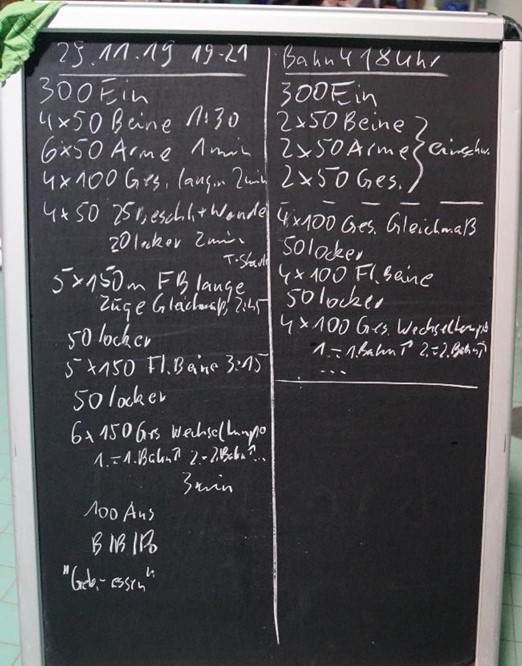 29.11.19 19-21
300 Ein
4x50 Beine 1:30
6x50 Arme 1min
4x100 Ges. langs. 2min
4x50 25 Beschl.+Wende
20 locker 2min
T-Start
5x150m FB lange
Züge Gleichmaß, 2:45
50 locker
5x150 Fl. Beine 3:15
50 locker
6x150 Ges Wechseltempo
1.=1.Bahn↑ 2.=2.Bahn↑...
3min
100 Aus
"Geb.-essen"
Bahn 4 18 Uhr
300 Ein
2x50 Beine
2x50 Arme } einschw.
2x50 Ges.
4x100 Ges. Gleichmaß
50 locker
4x100 Fl. Beine
50 locker
4x100 Ges. Wechseltempo
1.=1.Bahn↑ 2.=2.Bahn↑
...